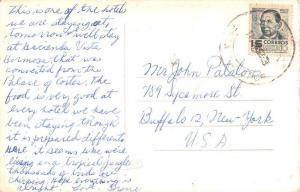 This is one of the hotels
we are staying at,
tomorrow will stay
at Hacienda Vista
Hermosa, that was
converted from the
Palace of Cortes. The
food is very good at
every hotel we have
been staying though
it is prepared different
here it seems like were
living in a tropical jungle
thousands of birds are
chirping. Hope everything is
alright. Love
CORREOS
Mr John
Sycamore St.
Buffalo 12, New-York
U.S.A